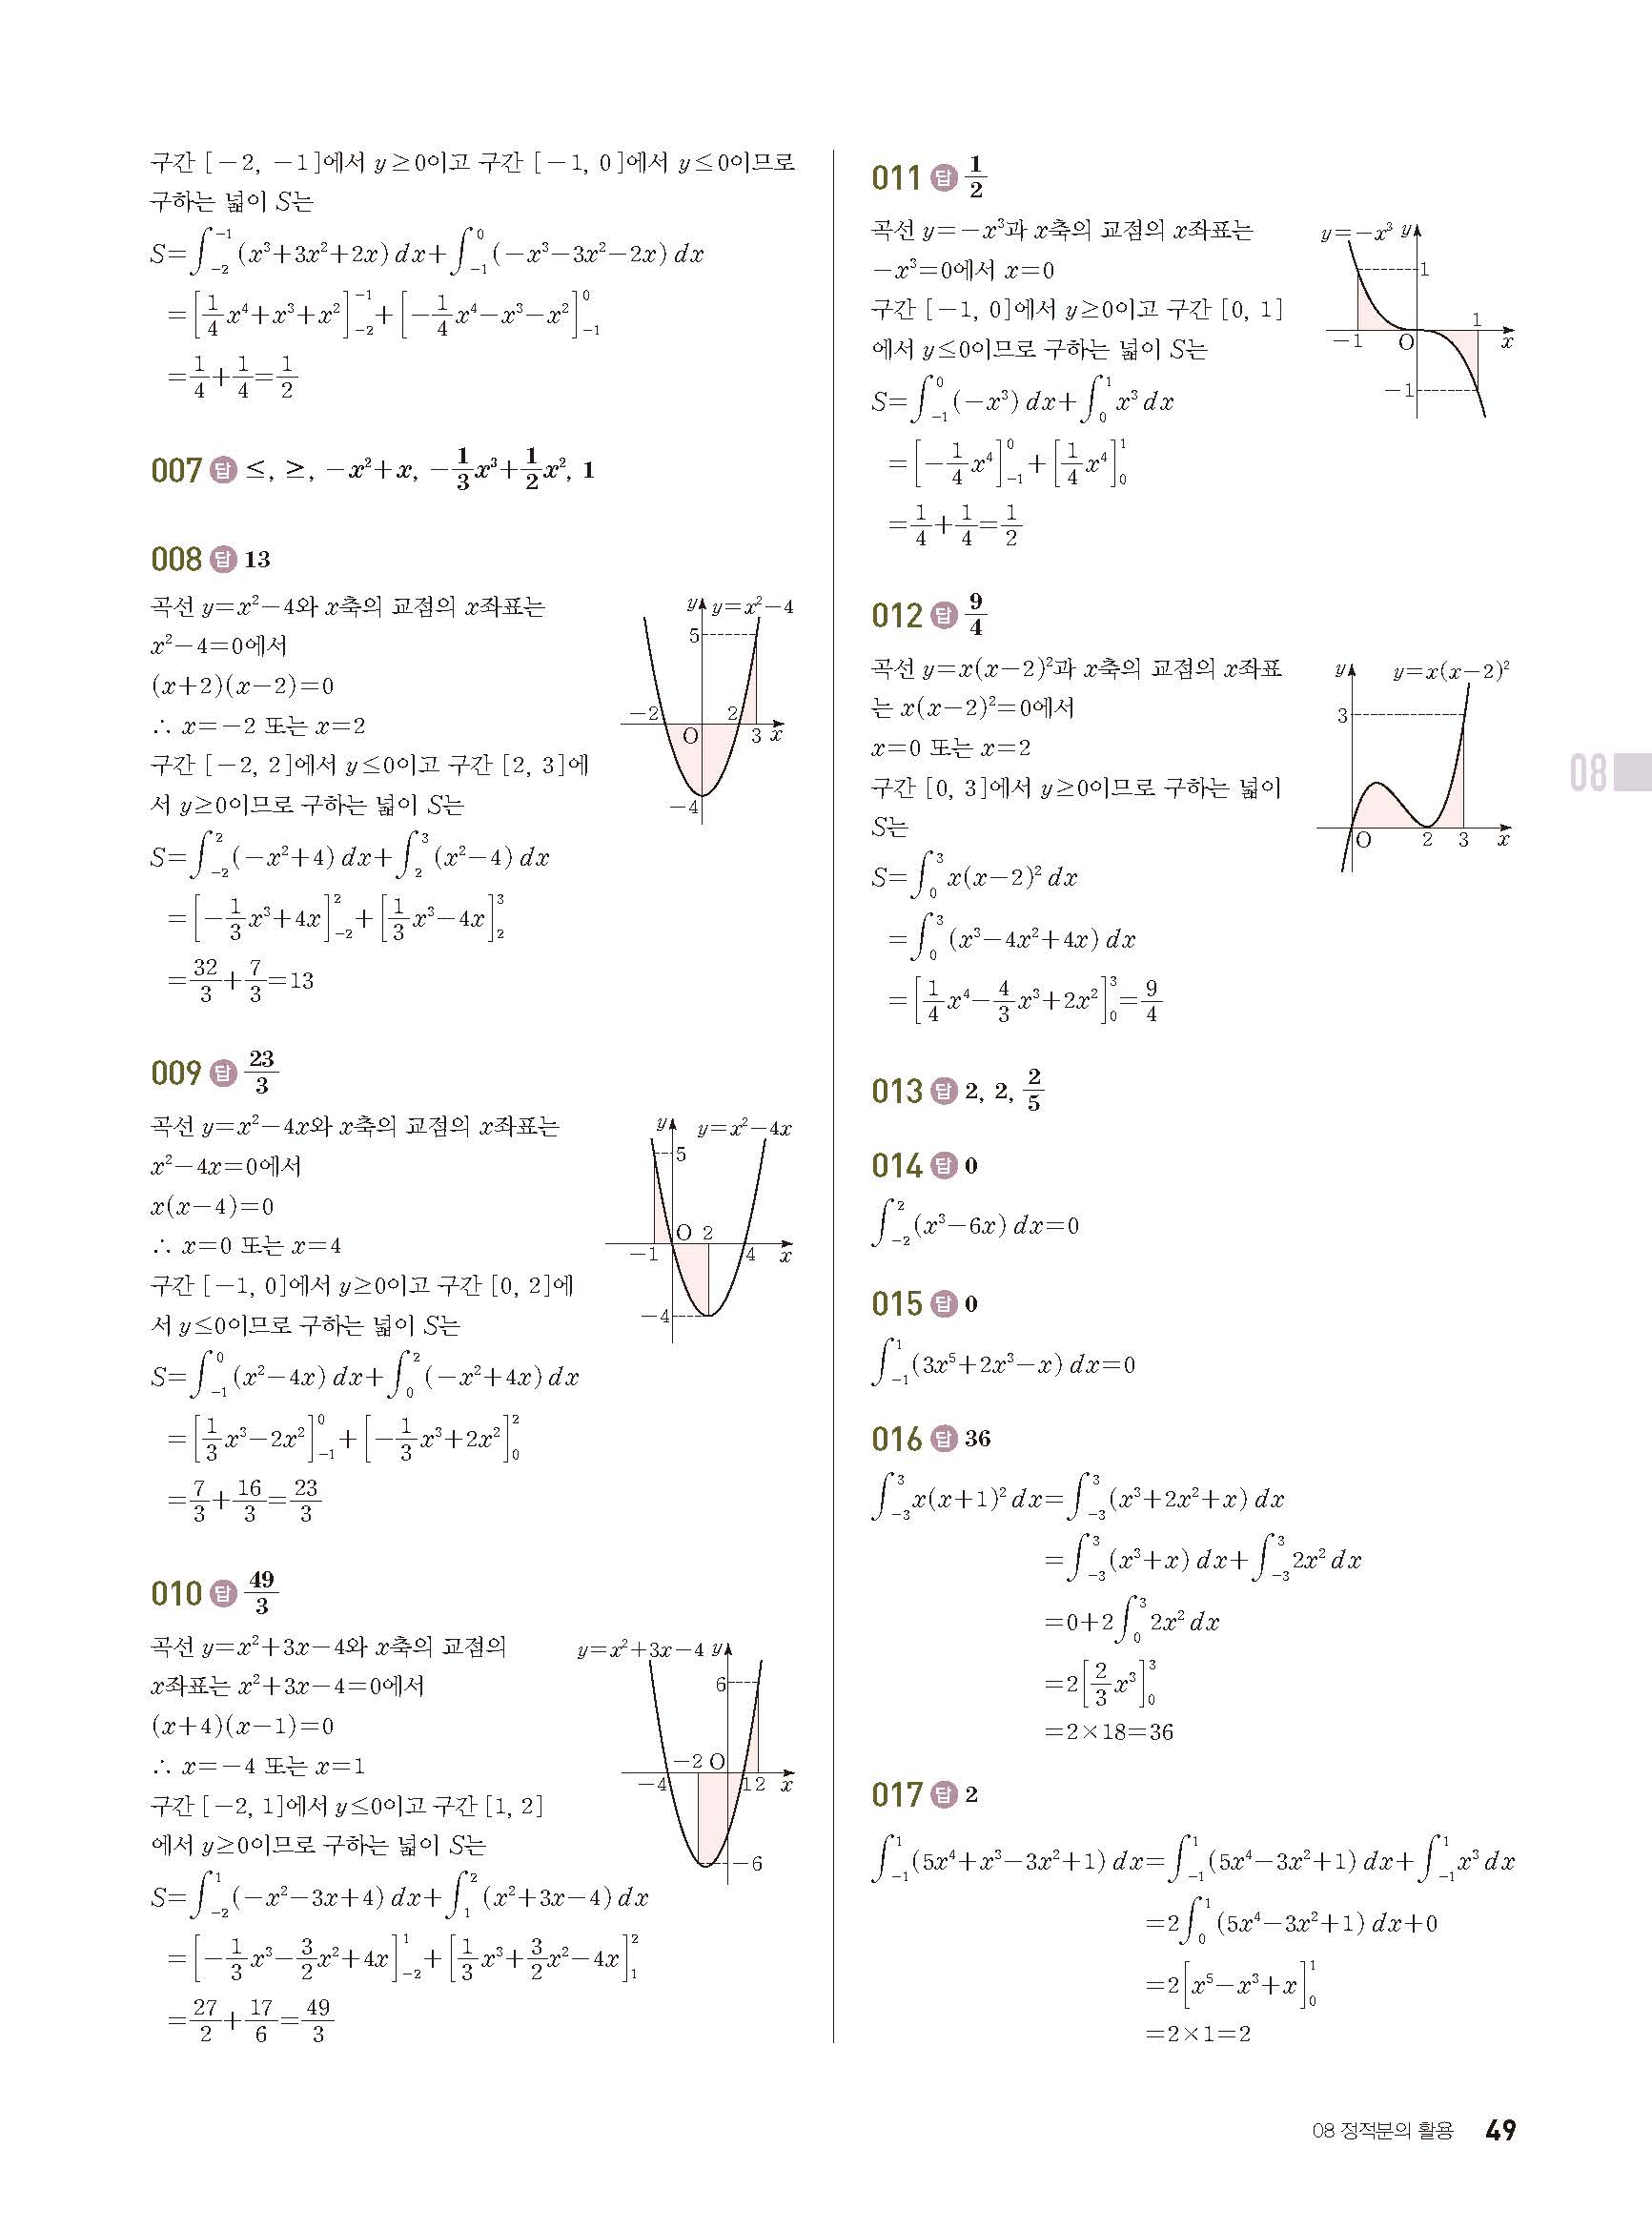 구간 [-2, -1]에서 y≥0이고 구간 [-1, 0]에서 y≤0이므로
구하는 넓이 S는
S=∫_{-2}^{-1}(x³+3x²+2x)dx+∫_{-1}^{0}(-x³-3x²-2x)dx
=[1/4x⁴+x³+x²]_{-2}^{-1}+[-1/4x⁴-x³-x²]_{-1}^{0}
=1/4+1/4=1/2
007 답 ≤, ≥, -x²+x, -1/3x³+1/2x², 1
008 답 13
곡선 y=x²-4와 x축의 교점의 x좌표는
x²-4=0에서
(x+2)(x-2)=0
∴ x=-2 또는 x=2
구간 [-2, 2]에서 y≤0이고 구간 [2, 3]에
서 y≥0이므로 구하는 넓이 S는
y y=x²-4
5
-2 2
O 3 x
-4
S=∫_{-2}^{2}(-x²+4)dx+∫_{2}^{3}(x²-4)dx
=[-1/3x³+4x]_{-2}^{2}+[1/3x³-4x]_{2}^{3}
=32/3+7/3=13
009 답 23/3
곡선 y=x²-4x와 x축의 교점의 x좌표는
x²-4x=0에서
x(x-4)=0
∴ x=0 또는 x=4
구간 [-1, 0]에서 y≥0이고 구간 [0, 2]에
서 y≤0이므로 구하는 넓이 S는
y y=x²-4x
5
O 2
-1 4 x
-4
S=∫_{-1}^{0}(x²-4x)dx+∫_{0}^{2}(-x²+4x)dx
=[1/3x³-2x²]_{-1}^{0}+[-1/3x³+2x²]_{0}^{2}
=7/3+16/3=23/3
010 답 49/3
곡선 y=x²+3x-4와 x축의 교점의
x좌표는 x²+3x-4=0에서
(x+4)(x-1)=0
∴ x=-4 또는 x=1
구간 [-2, 1]에서 y≤0이고 구간 [1, 2]
에서 y≥0이므로 구하는 넓이 S는
y=x²+3x-4 y
6
-2 O
-4 1 2 x
-6
S=∫_{-2}^{1}(-x²-3x+4)dx+∫_{1}^{2}(x²+3x-4)dx
=[-1/3x³-3/2x²+4x]_{-2}^{1}+[1/3x³+3/2x²-4x]_{1}^{2}
=27/2+17/6=49/3
011 답 1/2
곡선 y=-x³과 x축의 교점의 x좌표는
-x³=0에서 x=0
구간 [-1, 0]에서 y≥0이고 구간 [0, 1]
에서 y≤0이므로 구하는 넓이 S는
y=-x³ y
1
1
-1 O x
-1
S=∫_{-1}^{0}(-x³)dx+∫_{0}^{1}x³dx
=[-1/4x⁴]_{-1}^{0}+[1/4x⁴]_{0}^{1}
=1/4+1/4=1/2
012 답 9/4
곡선 y=x(x-2)²과 x축의 교점의 x좌표
는 x(x-2)²=0에서
x=0 또는 x=2
구간 [0, 3]에서 y≥0이므로 구하는 넓이
S는
y y=x(x-2)²
3
O 2 3 x
S=∫_{0}^{3}x(x-2)²dx
=∫_{0}^{3}(x³-4x²+4x)dx
=[1/4x⁴-4/3x³+2x²]_{0}^{3}=9/4
013 답 2, 2, 2/5
014 답 0
∫_{-2}^{2}(x³-6x)dx=0
015 답 0
∫_{-1}^{1}(3x⁵+2x³-x)dx=0
016 답 36
∫_{-3}^{3}x(x+1)²dx=∫_{-3}^{3}(x³+2x²+x)dx
=∫_{-3}^{3}(x³+x)dx+∫_{-3}^{3}2x²dx
=0+2∫_{0}^{3}2x²dx
=2[2/3x³]_{0}^{3}
=2×18=36
017 답 2
∫_{-1}^{1}(5x⁴+x³-3x²+1)dx=∫_{-1}^{1}(5x⁴-3x²+1)dx+∫_{-1}^{1}x³dx
=2∫_{0}^{1}(5x⁴-3x²+1)dx+0
=2[x⁵-x³+x]_{0}^{1}
=2×1=2
08
08 정적분의 활용 49